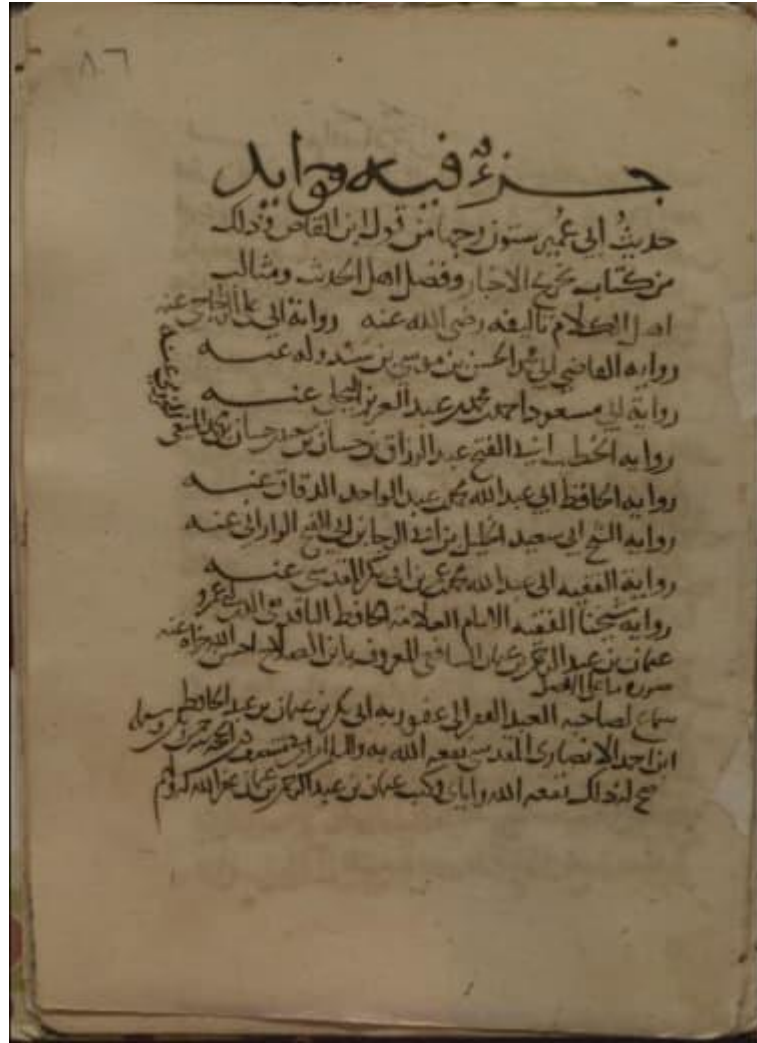 ٨٦
جزء فيه فوايد
حديث ابي عمير ستون وجها من قول ابن القاص في ذلك
من كتاب تخريج الاخبار وفضل اهل الحديث ومثالب
اهل الكلام تاليفه رضي الله عنه رواية ابي علي عنه
رواية القاضي ابي الحسن بن موسى بن عنه
رواية ابي مسعود احمد بن محمد بن عبد العزيز البجلي عنه
رواية الخطيب ابي الفتح عبد الرزاق بن حسان بن سعيد بن حسان بن المنيعي
رواية الحافظ ابي عبد الله محمد بن عبد الواحد الدقاق عنه
رواية الشيخ ابي سعيد الخليل بن ابي الرجا بن ابي الفتح الراراني عنه
رواية الفقيه ابي عبد الله محمد بن عمر بن ابي بكر المقدسي عنه
رواية شيخنا الفقيه الامام العلامة الحافظ الناقد تقي الدين ابي عمرو
عثمان بن عبد الرحمن بن عثمان الشافعي المعروف بابن الصلاح احسن الله جزاه عنه
صورة ما على الاصل
سماع لصاحبه العبد الفقير الى عفو ربه ابي بكر بن عثمان بن عبد الحافظ
ابن احمد الانصاري المقدسي نفعه الله به
صح له ذلك نفعه الله واياي وكتب عثمان بن عبد الرحمن بن عثمان غفر الله له ولهم